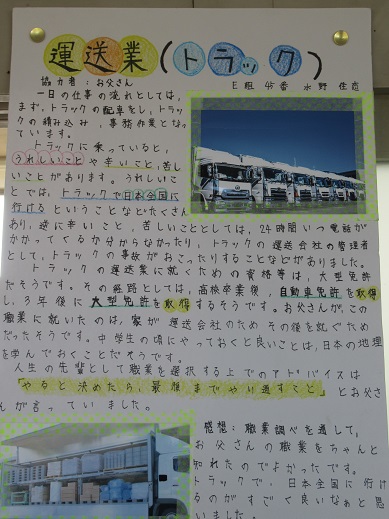 運送業(トラック)
協力者:お父さん
E組 45番 水野
一日の仕事の流れとしては,
まず,トラックの配車をし,トラッ
クの積み込み,事務作業となっ
ています。
トラックに乗っていると,
うれしいことや辛いこと,苦し
いことがあります。うれしいこ
とでは,トラックで日本全国に
行けるということなどたくさん
あり,逆に辛いこと,苦しいこととしては,24時間いつ電話が
かかってくるか分からなかったり,トラックの運送会社の管理者
として,トラックの事故がおこったりすることなどがありました。
トラックの運送業に就くための資格等は,大型免許
だそうです。その経路としては,高校卒業後,自動車免許を取得
し,3年後に大型免許を取得するそうです。お父さんが,この
職業に就いたのは,家が運送会社のためその後を就ぐため
だったそうです。中学生の頃にやっておくと良いことは,日本の地理
を学んでおくことだそうです。
人生の先輩として職業を選択する上でのアドバイスは
「やると決めたら,最後までやり通すこと」とお父さ
んが言っていました。
感想:職業調べを通して,
お父さんの職業をちゃんと
知れたのでよかったです。
トラックで,日本全国に行け
るのがすごく良いなぁと思
いました。